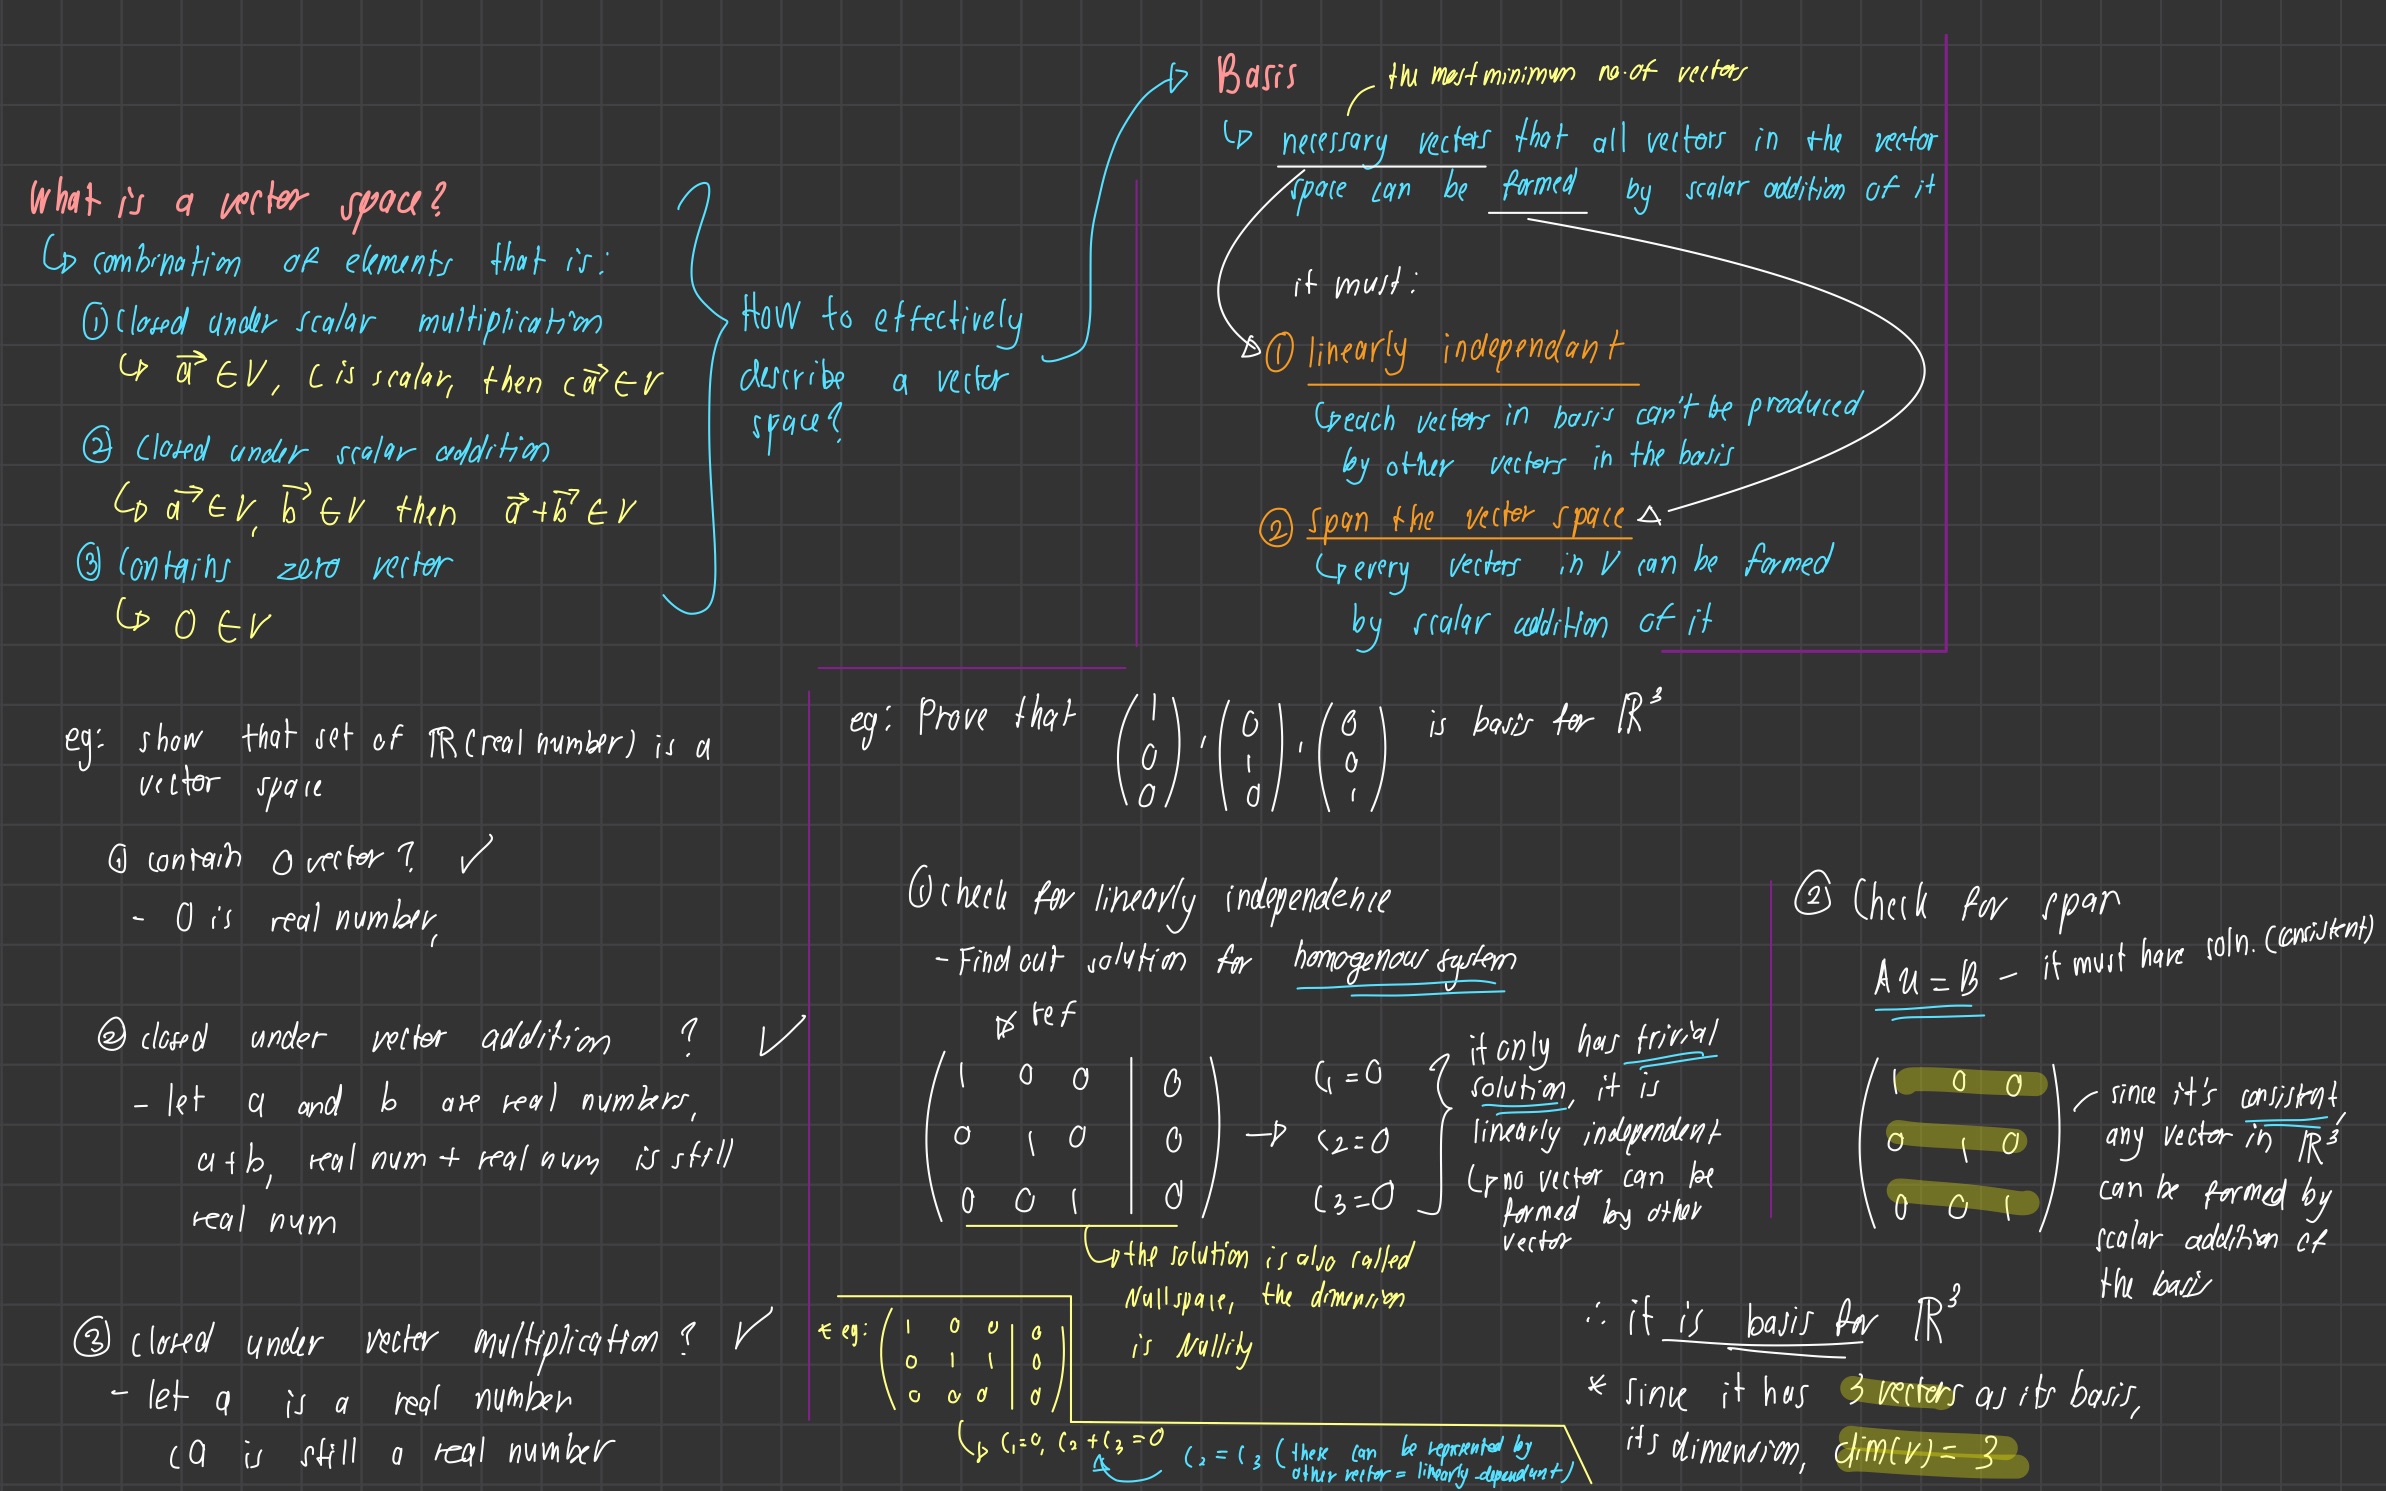 What is a vector space?
↳ combination of elements that is:
① closed under scalar multiplication
↳ a⃗ ∈ V, c is scalar, then ca⃗ ∈ V
② closed under scalar addition
↳ a⃗ ∈ V, b⃗ ∈ V then a⃗+b⃗ ∈ V
③ contains zero vector
↳ 0 ∈ V
How to effectively
describe a vector
space?
Basis
the most minimum no. of vectors
↳ necessary vectors that all vectors in the vector
space can be formed by scalar addition of it
it must:
① linearly independant
↳ each vectors in basis can't be produced
by other vectors in the basis
② span the vector space
↳ every vectors in V can be formed
by scalar addition of it
eg: show that set of ℝ (real number) is a
vector space
① contain 0 vector? ✓
- 0 is real number,
② closed under vector addition ? ✓
- let a and b are real numbers,
a+b, real num + real num is still
real num
③ closed under vector multiplication? ✓
- let a is a real number
ca is still a real number
eg: Prove that (1 0 0), (0 1 0), (0 0 1) is basis for ℝ³
① check for linearly independence
- Find out solution for homogenous system
ref
1 0 0 | 0
0 1 0 | 0
0 0 1 | 0
→ c1=0
c2=0
c3=0
if only has trivial
solution, it is
linearly independent
↳ no vector can be
formed by other
vector
↳ the solution is also called
Nullspace, the dimension
is Nullity
* eg:
1 0 0 | 0
0 1 1 | 0
0 0 0 | 0
↳ c1=0, c2+c3=0
c2=c3 (these can be represented by
other vector = linearly dependant)
② Check for span
Au=B - it must have soln. (consistent)
1 0 0
0 1 0
0 0 1
since it's consistent,
any vector in ℝ³
can be formed by
scalar addition of
the basis
∴ it is basis for ℝ³
* since it has 3 vectors as its basis,
its dimension, dim(V) = 3